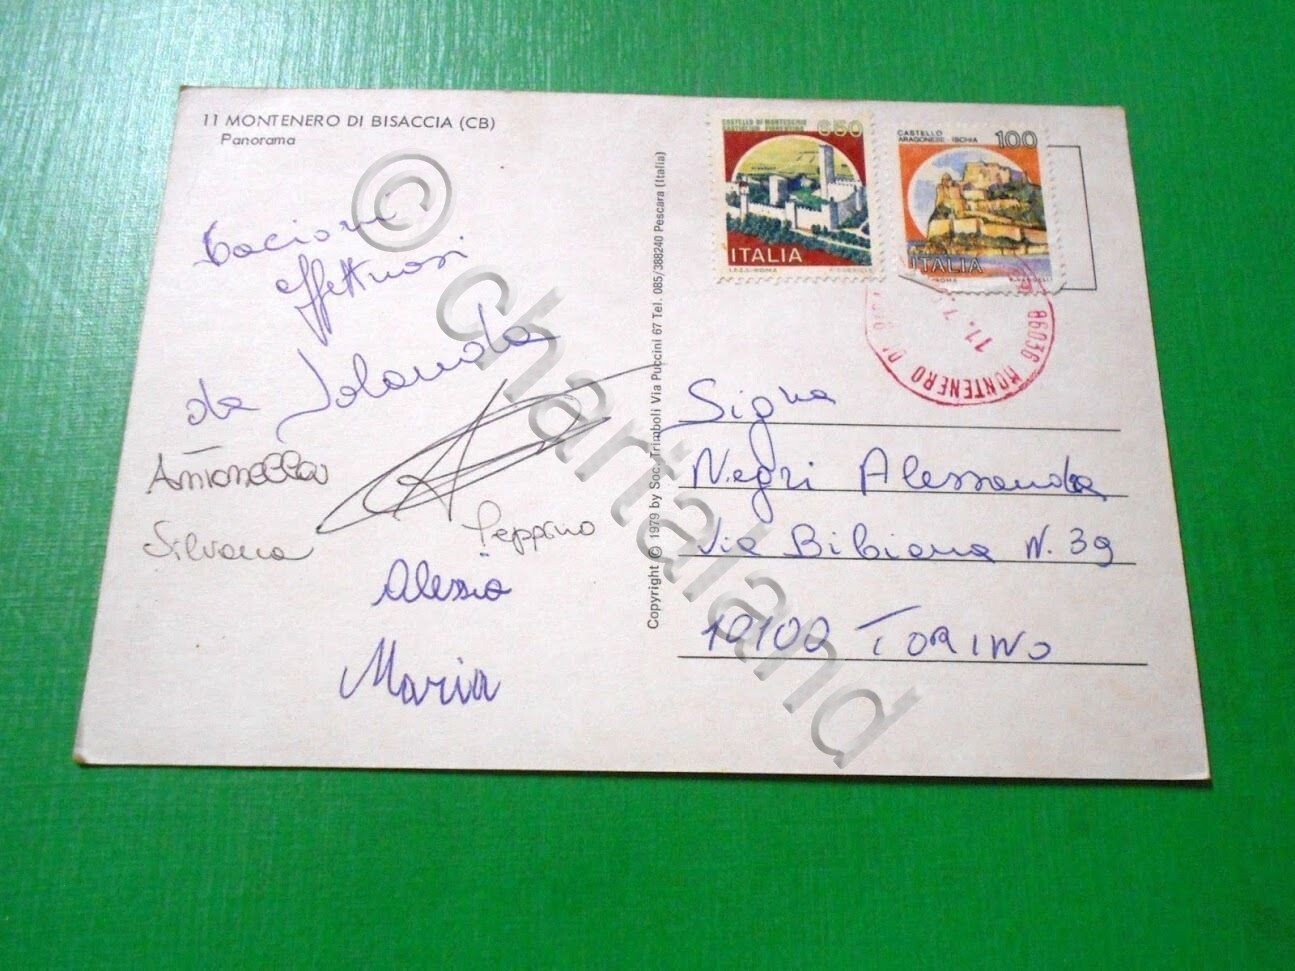 11 MONTENERO DI BISACCIA (CB)
Panorama
bacioni
affettuosi
da Jolanda
Antonella
Silvana
Peppino
Alessio
Maria
Copyright © 1979 by Soc. Trimboli Via Puccini 67 Tel. 085/388240 Pescara (Italia)
CASTELLO DI MONTECCHIO
CASTIGLION FIORENTINO
650
ITALIA
I.P.Z.S. ROMA
CASTELLO
ARAGONESE - ISCHIA
100
ITALIA
ROMA
86036 MONTENERO DI
Sigra
Negri Alessandra
Via Bibiana N. 39
10100 TORINO
© chartaland